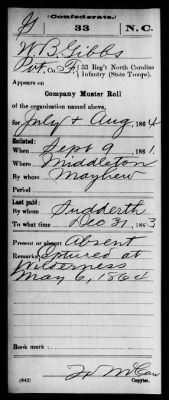 (Confederate.)
G 33 N.C.
W B Gibbs
Pvt, Co. F, 33 Reg't North Carolina
Infantry (State Troops).
Appears on
Company Muster Roll
of the organization named above,
for July & Aug, 1864
Enlisted:
When Sept 9, 1861
Where Middleton
By whom Mayhew
Period
Last paid:
By whom Sudderth
To what time Dec 31, 1863
Present or absent Absent
Remarks: Captured at
Wilderness
May 6, 1864
Book mark:
(642) Copyist.